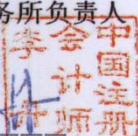 务所负责人
中国注册
会计师
李